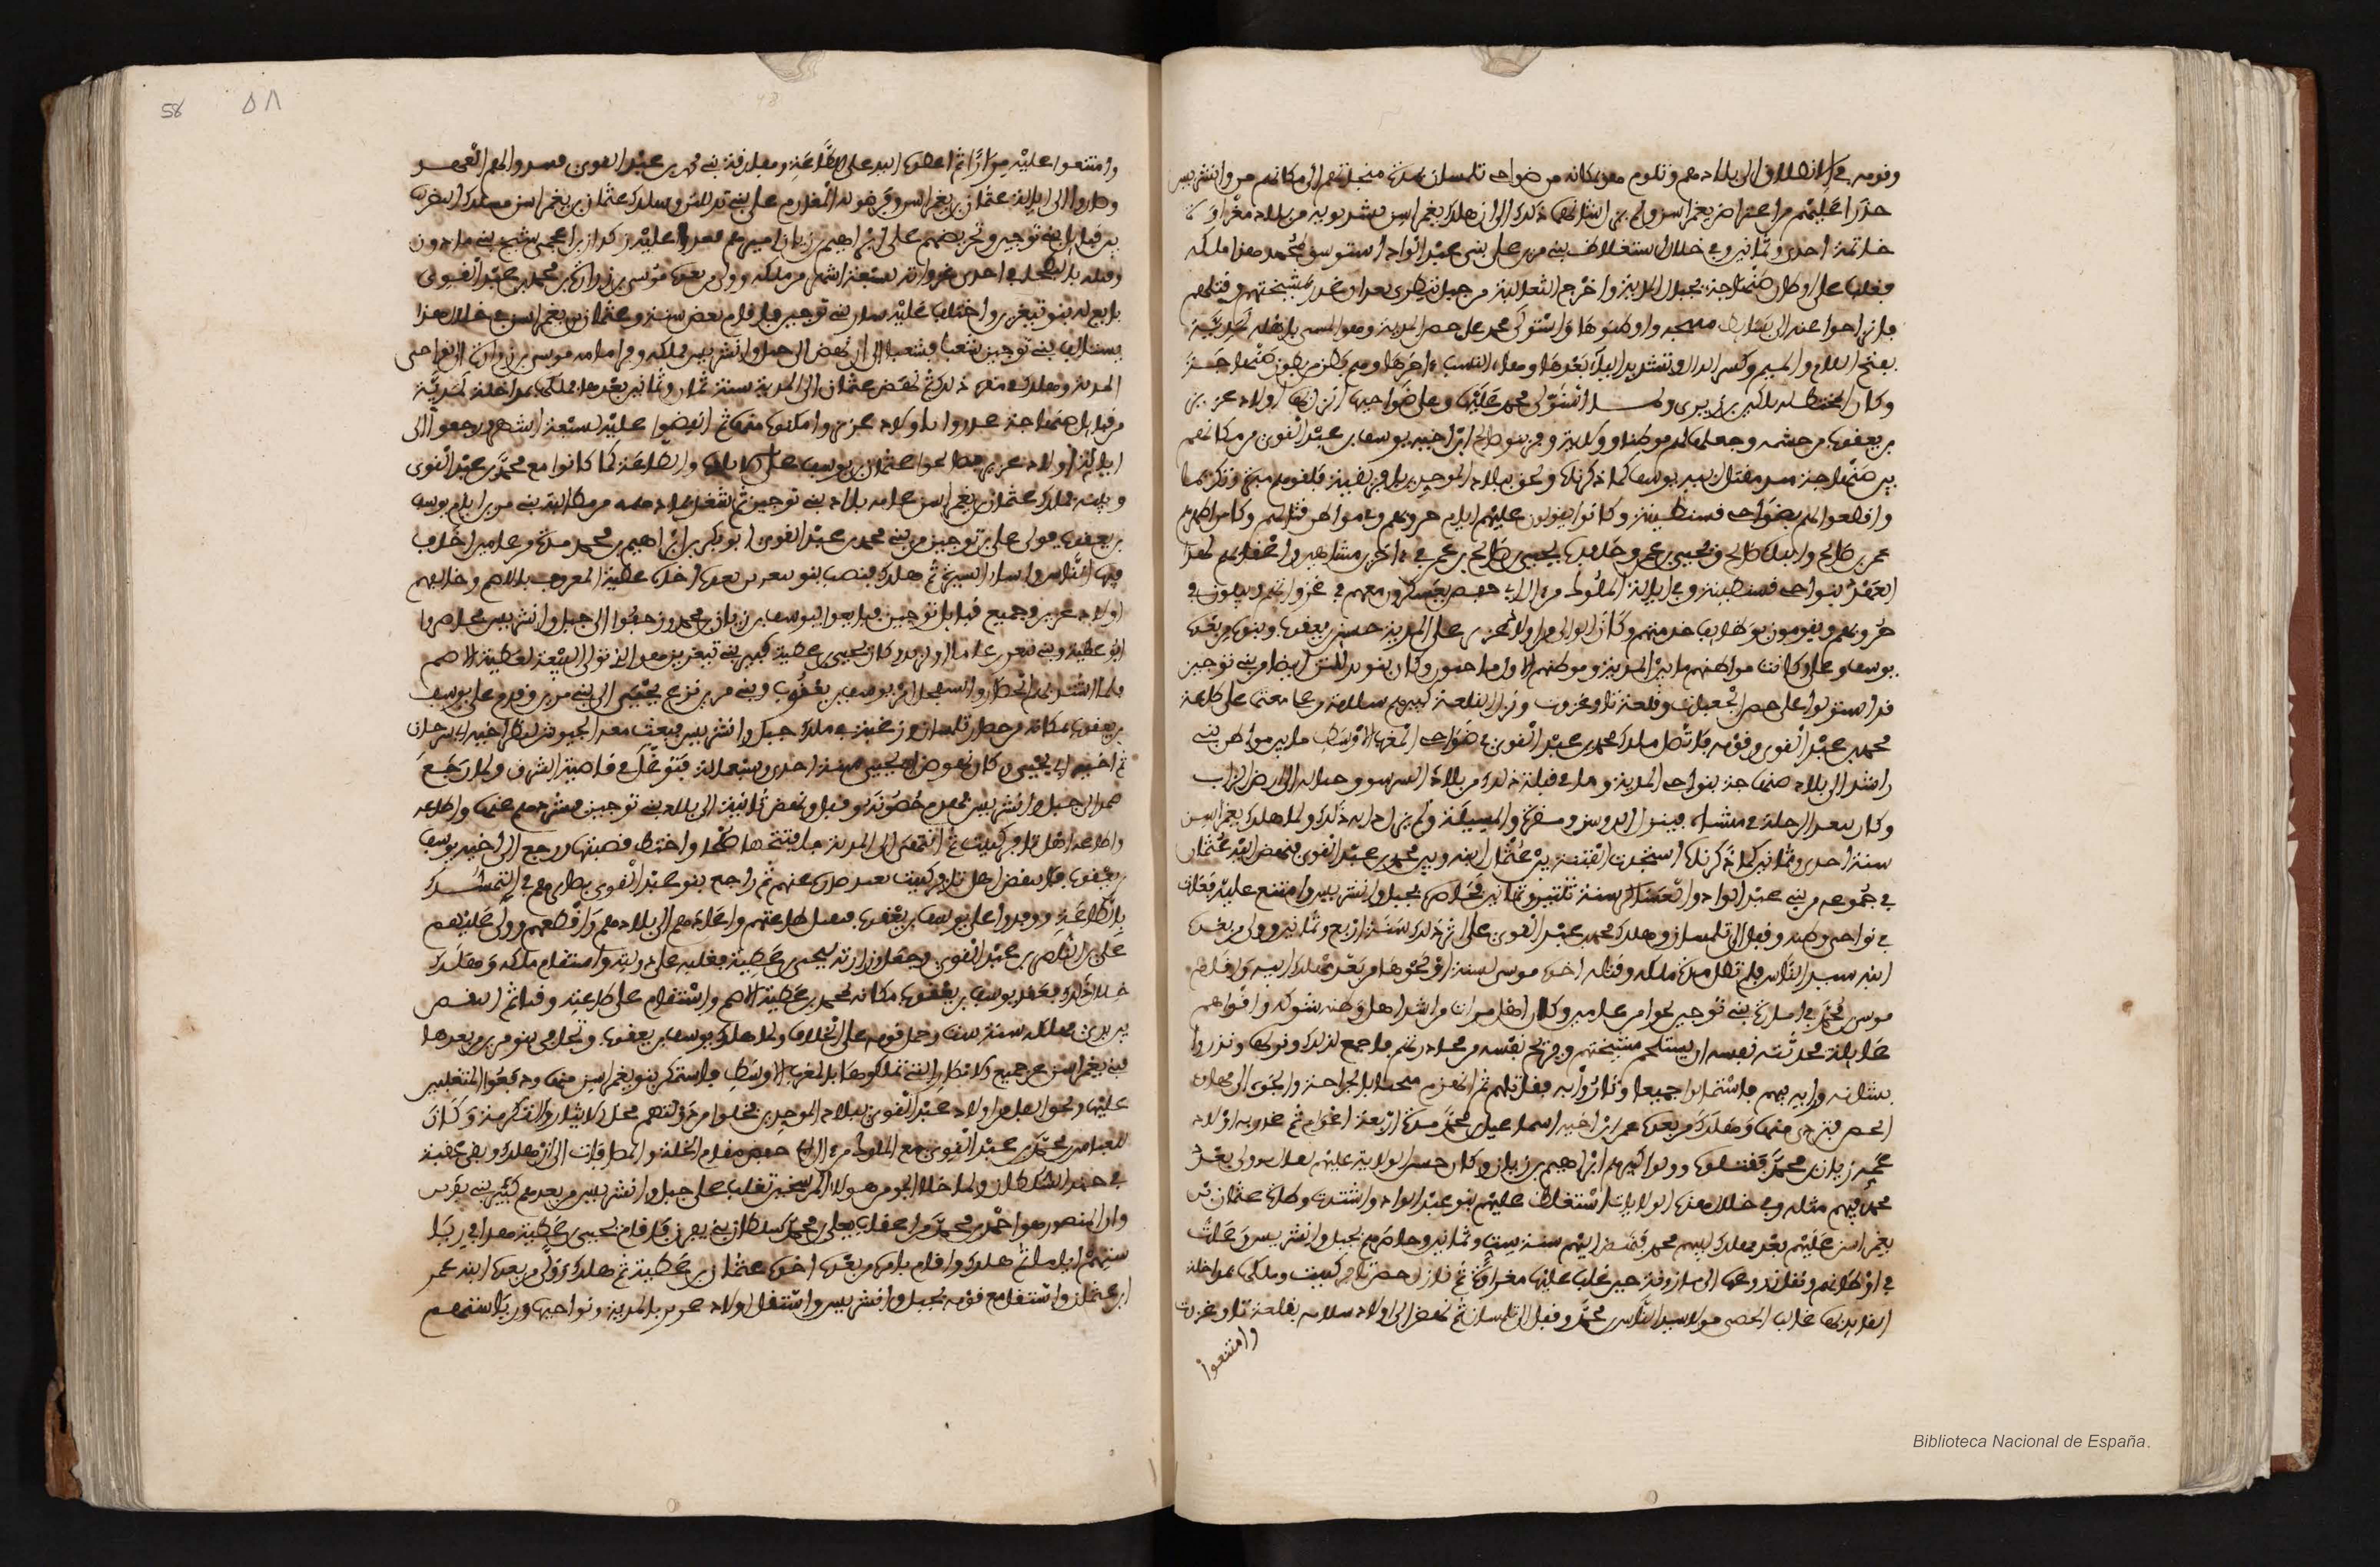 وقومه في الانطلاق الى بلادهم وتلوم هو بمكانه من ضواحي تلمسان مدة منجاتهم الى مكانهم من وانشريس
حذرا عليهم من اعتراض يغمراسن ولم يزل شانهم ذلك الى ان هلك يغمراسن بشدبويه من بلاد مغراوة
خاتمة احدى وثمانين وفي خلال استغلاظ بني مرين على بني عبد الواد استوسق لمحمد هذا ملكه
فغلب على اوطان صنهاجة بجبال المدية واخرج الثعالبة من جبل تيطري بعد ان غدر بمشيختهم وقتلهم
فانزاحوا عنه الى بسائط متيجة واوطنوها واستولى محمد على حصن المدية وهو المسمى باهله لمدية
بفتح اللام والميم وكسر الدال وتشديد الياء بعدها وهاء النسب اخرها وهم بطن من بطون صنهاجة
وكان المختط لها بلكين بن زيري ولما استولى محمد عليها وعلى ضواحيها انزل بها اولاد عزيز
بن يعقوب من حشمه وجعلها لهم موطنا وولاية وفر بنو صالح ابن اخيه يوسف بن عبد القوي من مكانهم
بين صنهاجة منذ مقتل ابيه يوسف كما ذكرناه ولحقوا ببلاد الموحدين بافريقية فلقوهم مبرة وتكريما
واقطعوا لهم بضواحي قسنطينة وكانوا يعولون عليهم ايام حروبهم وفي مواطن قتالهم وكان من اظهرهم
عمر بن صالح وابناه صالح ويحيى بن عمر وحفيده يحيى بن صالح بن عمر في اخرين مشاهير واعقابهم لهذا
العهد بنواحي قسنطينة وفي ايالة الملوك من ال ابي حفص يعسكرون معهم في غزواتهم ويبلون في
حروبهم ويقومون بوظائف خدمتهم وكان الوالي من اولاد عزيز على المدية حسن بن يعقوب وبنوه من بعده
يوسف وعلي وكانت مواطنهم ما بين المدية وموطنهم الاول ماحنون وكان بنو يدللتن ايضا من بني توجين
قد استولوا على حصن الجعبات وقلعة تاوغزوت ونزل القلعة كبيرهم سلامة بن علي مقيما على طاعة
محمد بن عبد القوي وقومه فاتصل ملك محمد بن عبد القوي في ضواحي المغرب الاوسط ما بين مواطن بني
راشد الى بلاد صنهاجة بنواحي المدية وما في قبلة ذلك من بلاد السرسو وجباله الى ارض الزاب
وكان يبعد الرحلة في مشتاه فينزل الدوسن ومقرة والمسيلة ولم يزل دابه ذلك ولما هلك يغمراسن
سنة احدى وثمانين كما ذكرناه استجدت الفتنة بين عثمان ابنه وبين محمد بن عبد القوي فنهض اليه عثمان
في جموعه من بني عبد الواد والعساكر سنة ثنتين وثمانين فحاصره بجبل وانشريس وامتنع عليه فعاث
في نواحي وطنه وقفل الى تلمسان وهلك محمد بن عبد القوي على اثر ذلك سنة اربع وثمانين وولي من بعده
ابنه سيد الناس فلم تطل مدة ملكه وقتله اخوه موسى لسنة او نحوها من بعد مهلك ابيه واقام
موسى بن محمد في امارة بني توجين نحوا من عامين وكان اهل مرات من اشد اهل وطنه شوكة واقواهم
غائلة فحدثته نفسه ان يستلحم مشيختهم ويريح نفسه من محاذرتهم فاجمع لذلك ونزلها ونذروا
بشانه ورايه فيهم فاستماتوا جميعا وثاروا به فقاتلهم ثم انهزم مثخنا بالجراحة والجؤه الى مهاوي
الحصن فتردى منها وهلك وولي من بعده عمر ابن اخيه اسماعيل بن محمد مدة اربعة اعوام ثم غدر به اولاد
عمه زيان بن محمد فقتلوه وولوا كبيرهم ابراهيم بن زيان وكان حسن الولاية عليهم يقال ما ولي بعد
محمد فيهم مثله وفي خلال هذه الولايات استغلظ عليهم بنو عبد الواد واشتدت وطاة عثمان بن
يغمراسن عليهم بعد مهلك ابيهم محمد فنهض اليهم سنة ست وثمانين وحاصرهم بجبل وانشريس وعاث
في اوطانهم ونقل زروعها الى مازونة حين غلب عليها مغراوة ثم نازل حصن تافركينت وملكها بمداخلة
القائد بها غالب الخصي مولى سيد الناس بن محمد وقفل الى تلمسان ثم نهض الى اولاد سلامة بقلعة تاوغزوت
وامتنعوا
58 ٥٨
وامتنعوا عليه مرارا ثم اعطوه اليد على الطاعة ومفارقة بني محمد بن عبد القوي فنبذوا لهم العهد
وصاروا الى ايالة عثمان بن يغمراسن وفرضوا له المغارم على بني يدللتن وسلك عثمان بن يغمراسن مسلك التضريب
بين قبائل بني توجين وتحريضهم على ابراهيم بن زيان اميرهم فعدا عليه زكراز بن اعجمي شيخ بني مادون
وقتله بالبطحاء في احدى غزواته لسبعة اشهر من ملكه وولي من بعده موسى بن زرارة بن محمد بن عبد القوي
بايع له بنو تيغرين واختلف عليه سائر بني توجين فاقام بعض سنة وعثمان بن يغمراسن في خلال هذا
يستالف بني توجين شعبا فشعبا الى ان نهض الى جبل وانشريس فملكه وفر امامه موسى بن زرارة الى نواحي
المدية وهلك في مفره ذلك ثم نهض عثمان الى المدية سنة ثمان وثمانين بعدها فملكها بمداخلة لمدية
من قبائل صنهاجة غدروا باولاد عزيز وامكنوه منها ثم انتقضوا عليه لسبعة اشهر ورجعوا الى
ايالة اولاد عزيز فصالحوا عثمان بن يوسف على الاتاوة والطاعة كما كانوا مع محمد بن عبد القوي
وبنيه فملك عثمان بن يغمراسن عامة بلاد بني توجين ثم شغل بما دهمه من مطالبة بني مرين ايام يوسف
بن يعقوب فولي على بني توجين من بني محمد بن عبد القوي ابو بكر بن ابراهيم بن محمد مدة من عامين اخاف
فيها الناس واساء السيرة ثم هلك فنصب بنو تيغرين بعده اخاه عطية المعروف بالاصم وخالفهم
اولاد عزيز وجميع قبائل توجين فبايعوا ليوسف بن زيان بن محمد وزحفوا الى جبل وانشريس فحاصروا
به عطية وبني تيغرين عاما او يزيد وكان يحيى بن عطية كبير بني تيغرين هو الذي تولى البيعة لعطية الاصم
فلما اشتد بهم الحصار واستفحل امر يوسف بن يعقوب وبني مرين نزع يحيى الى بني مرين وقدم على يوسف
بن يعقوب بمكانه من حصار تلمسان ورغبه في ملك جبل وانشريس فبعث معه الجيوش لنظر اخيه ابي سرحان
ثم اخيه ابي يحيى وكان نهوض ابي يحيى سنة احدى وسبعمائة فتوغل في قاصية الشرق ولما رجع
صمد الى جبل وانشريس فهدم حصونه وقفل ونهض ثانية الى بلاد بني توجين فشردهم عنها واطاعه
واطاعه اهل تافركينت ثم انتهى الى المدية فافتتحها صلحا واختط قصبتها ورجع الى اخيه يوسف
بن يعقوب فانتقض اهل تافركينت بعد صدوره عنهم ثم راجع بنو عبد القوي بصائرهم في التمسك
بالطاعة ووفدوا على يوسف بن يعقوب فتقبل طاعتهم واعادهم الى بلادهم واقطعهم وولى عليهم
علي بن الناصر بن عبد القوي وجعل وزارته ليحيى بن عطية فغلبه على دولته واستقام ملكه وهلك
خلال ذلك فعقد يوسف بن يعقوب مكانه لمحمد بن عطية الاصم واستقام على طاعته وقتا ثم انتقض
بين يدي مهلكه سنة ست وحمل قومه على الخلاف ولما هلك يوسف بن يعقوب وتجافى بنو مرين من بعدها
لبني يغمراسن عن جميع الامصار التي تملكوها بالمغرب الاوسط فاستمكن بنو يغمراسن منها ودفعوا المتغلبين
عليها ولحق الفل من اولاد عبد القوي ببلاد الموحدين فحلوا من دولتهم محل الايثار والتكرمة وكان
للعباس بن محمد بن عبد القوي مع الملوك من ال ابي حفص مقام الخلة والمصافاة الى ان هلك وبقي عقبه
في جند السلطان ولما خلا الجو من هؤلاء المرشحين تغلب على جبل وانشريس من بعدهم كبير بني تيغرين
وان المنصور هو احمد بن محمد من اعقاب يعلى بن محمد سلطان بني يفرن فاقام يحيى بن عطية هذا في رياسة
سنهم اياما ثم هلك وقام بامره من بعده اخوه عثمان بن عطية ثم هلك وولي من بعده ابنه عمر
ابن عثمان واستقل مع قومه بجبل وانشريس واستقل اولاد عزيز بالمدية ونواحيها ورياستهم
Biblioteca Nacional de España.